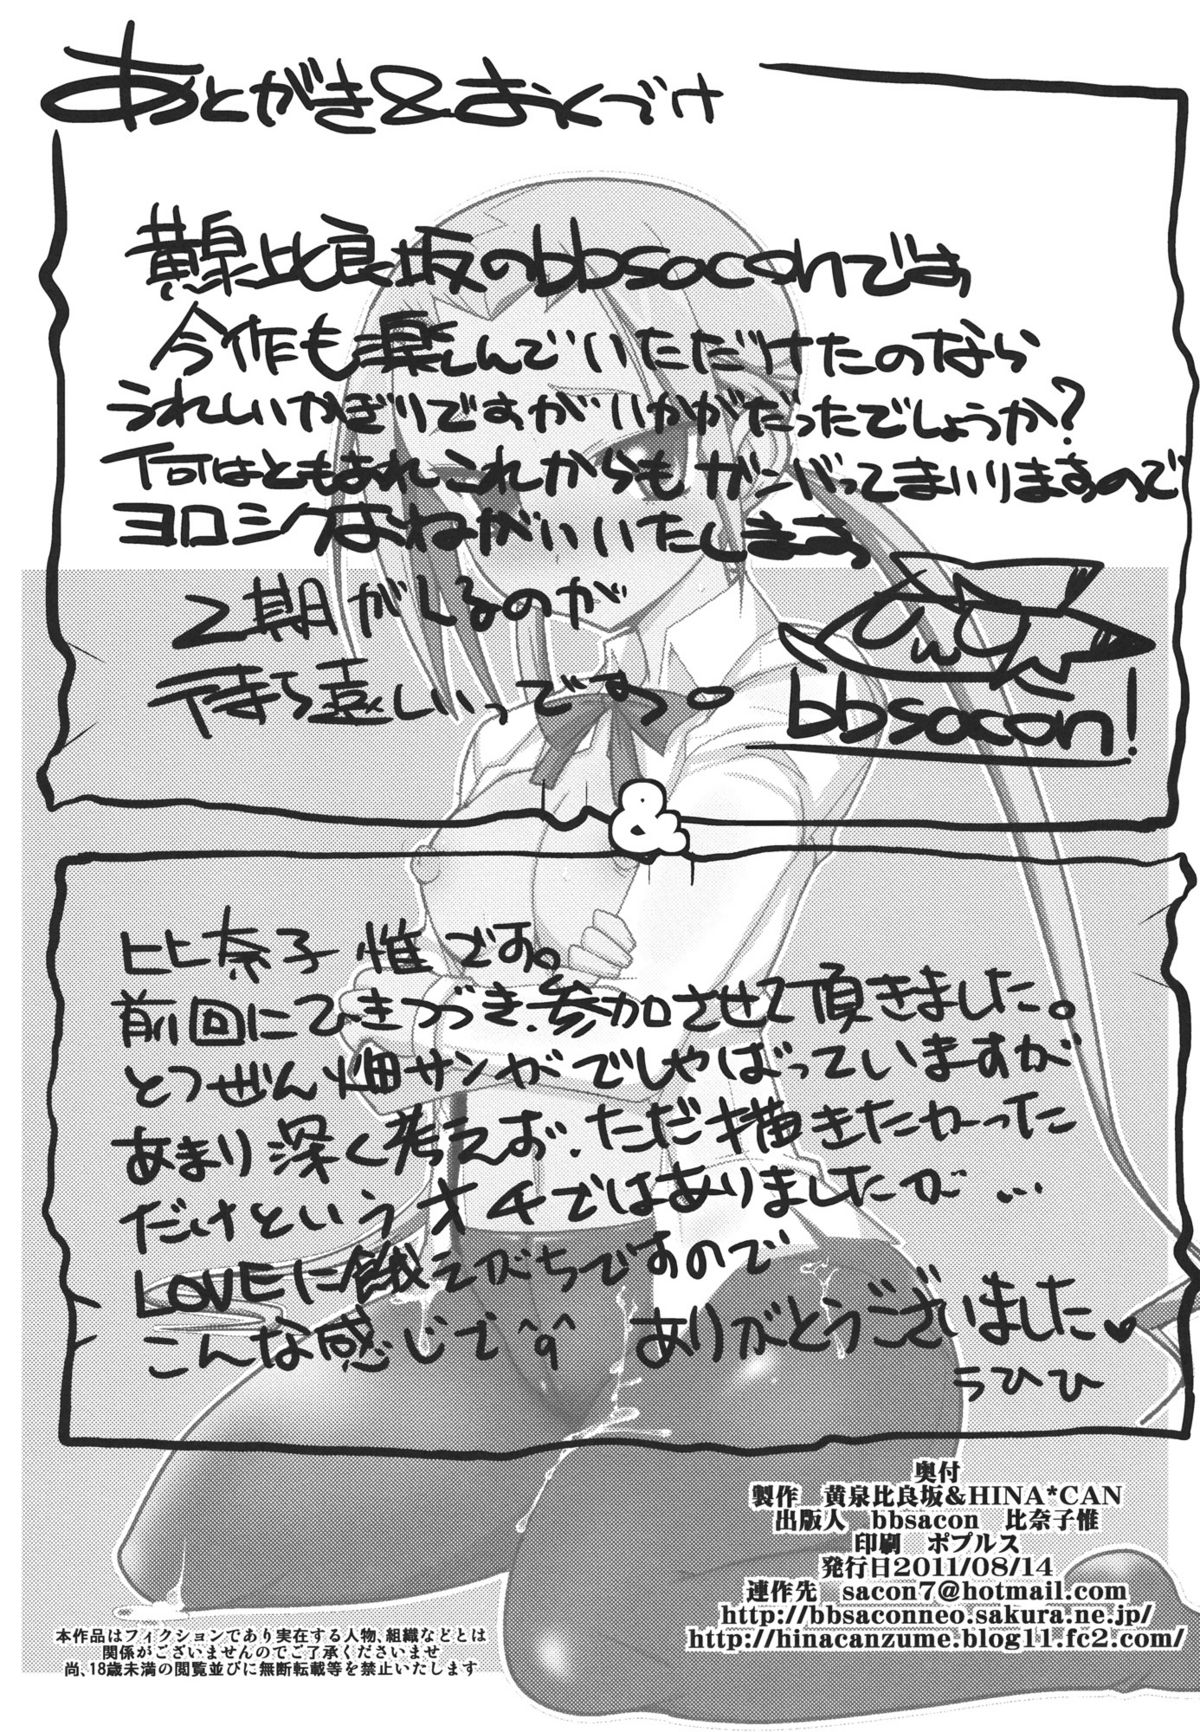 あとがき&おくづけ
黄泉比良坂のbbsaconです
今作も楽しんでいただけたのなら
うれしいかぎりですがいかがだったでしょうか?
何はともあれこれからもガンバってまいりますので
ヨロシクおねがいいたします
2期がくるのが
待ち遠しいっです。
bbsacon!
&
比奈子 惟です。
前回にひきつづき、参加させて頂きました。
とつぜん畑サンがでしゃばっていますが
あまり深く考えお、ただ描きたかった
だけというオチではありましたが…
LOVEに餓えがちですので
こんな感じで^q^ ありがとうございました♥
うひひ
奥付
製作 黄泉比良坂&HINA*CAN
出版人 bbsacon 比奈子惟
印刷 ポプルス
発行日2011/08/14
連作先 sacon7@hotmail.com
http://bbsaconneo.sakura.ne.jp/
http://hinacanzume.blog11.fc2.com/
本作品はフィクションであり実在する人物、組織などとは
関係がございませんのでご了承くださいませ
尚、18歳未満の閲覧並びに無断転載等を禁止いたします